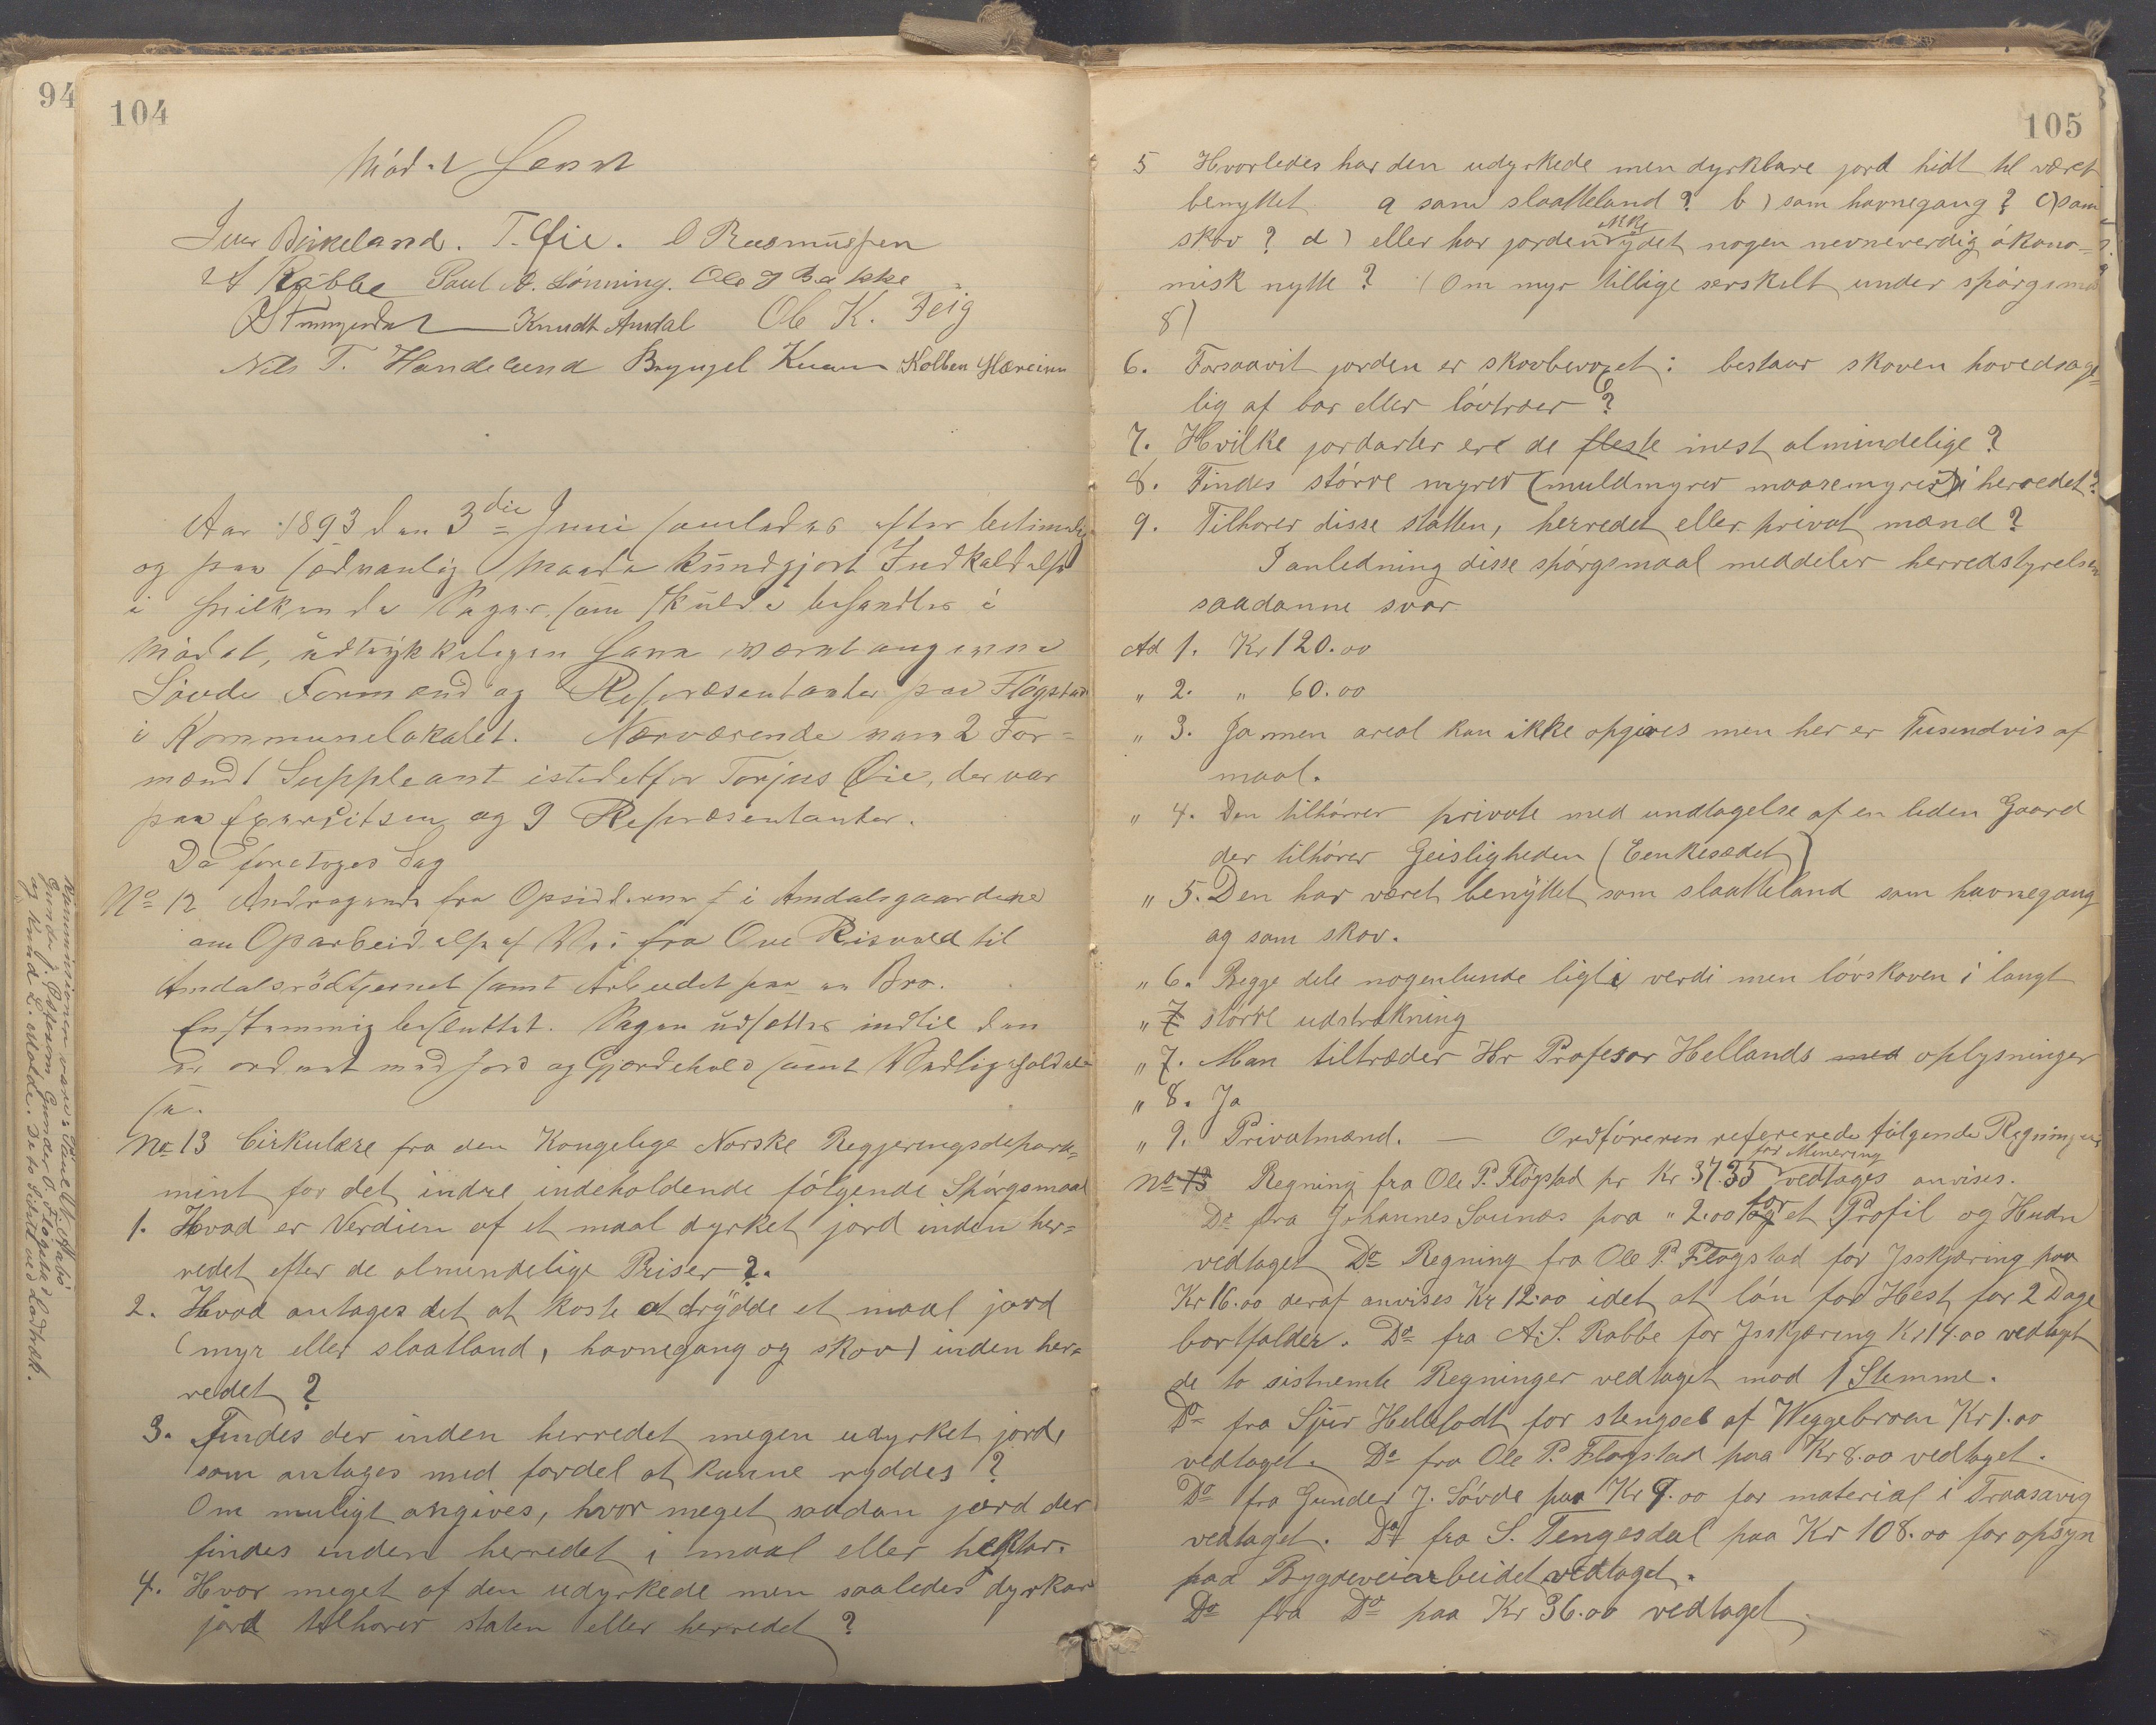 94
104
Mödet hævet
Iver Birkeland. T. Öie. O Rasmussen
A Rabbe Paul A. Lönning. Ole J Bakke
STengesdal Knudt Amdal Ole K. Feig
Nils T. Handeland Kolben Hæreim
Aar 1893 den 3die Juni samledes efter betimelig
og paa sædvanlig Maade kundgjort Indkaldelse
i hvilken de Sager, som skulde behandles i
Mödet, udtrykkeligen have været angivne
Søvde Formænd og Repræsentanter paa Flögstad
i Kommunelokalet. Nærværende var 2 For=
mænd 1 Suppleant istedetfor Torjus Öie, der var
paa Exersitsen og 9 Repræsentanter.
Da foretoges Sag
No 12 Andragende fra Opsidderne i Amdalsgaardene
om Oparbeidelse af Vei fra Ove Risvold til
Amdalsrödtjernet samt Arbeidet paa en Bro.
Enstemmig besluttet. Sagen udsættes indtil den
er ordnet med Jord og Gjærdehold samt Vedligehold
No 13 Cirkulære fra den Kongelige Norske Regjeringsdeparte=
mint for det indre indeholdende fölgende Spörgsmaal
1. Hvad er Verdien af et maal dyrket jord inden her=
redet efter de almindelige Priser?.
2. Hvad antages det at koste at drydde et maal jord
(myr eller slaatland, havnegang og skov) inden her=
redet?
3. Findes der inden herredet megen udyrket jord,
som antages med fordel at kunne ryddes?
Om muligt angives, hvor meget saadan jord der
findes inden herredet i maal eller hektar.
4. Hvor meget af den udyrkede men saaledes dyrkar
jord tilhorer staten eller herredet?
Kommissionen var: Paul A. Aabö
Gunder J. Gunder O. Flögstad
og Knud L. Molde. De to Sidste ved Lodtræk.
105
5 Hvorledes har den udyrkede men dyrkbare jord hidt til været
benyttet a som slaatteland? b) som havnegang? c) som
skov? d) eller har jorden ikke ydet nogen nevneverdig ökono=
misk nytte? (Om myr tillige særskelt under spörgsmaal
8)
6. Forsaavit jorden er skovbevoxet: bestaar skoven hovedsage=
lig af bar eller lövtræer?
7. Hvilke jordarter ere de fleste mest almindelige?
8. Findes större myrer (muldmyrer maasemyrer) i herredet?
9. Tilhorer disse statten, herredet eller privat mænd?
I anledning disse spörgsmaal meddeler herredstyrelsen
saadanne svar
Ad 1. Kr 120.00
" 2. " 60.00
" 3. Ja men areal kan ikke opgives men her er Tusendvis af
maal.
" 4. Den tilhörrer private med undtagelse af en liden Gaard
der tilhörer Geisligheden (Eenkesædet)
" 5. Den har været benyttet som slaatteland som havnegang
og som skov.
" 6. Begge dele nogenlunde ligt i verdi men lövskoven i langt
" 7 större udstrakning
" 7. Man tiltræder Hr Profesor Hellands med oplysninger
" 8. Ja
" 9. Privatmænd. — Ordföreren refererede fölgende Regninger
No 13 Regning fra Ole P. Flögstad pr Kr 37.35 for Minering vedtages anvises.
Do fra Johannes Sounæs paa " 2.00 for et Profil og Hudn
vedtaget Do Regning fra Ole P. Flogstad for Isskjæring paa
Kr 16.00 deraf anvises Kr 12.00 idet at lön for Hest for 2 Dage
bortfalder. Do fra A. S. Rabbe for Isskjæring Kr 14.00 vedtagt
de to sistnemte Regninger vedtaget mod 1 Stemme.
Do fra Sjur Helleland for stengsel af Weggebroen Kr 1.00
vedtaget. Do fra Ole P. Flogstad paa Kr 8.00 vedtaget.
Do fra Gunder J. Sövde paa Kr 9.00 for material i Traasavig
vedtaget. Do fra S. Tengesdal paa Kr 108.00 for opsyn
paa Bygdeveiarbeidet vedtaget.
Do fra Do paa Kr 36.00 vedtaget